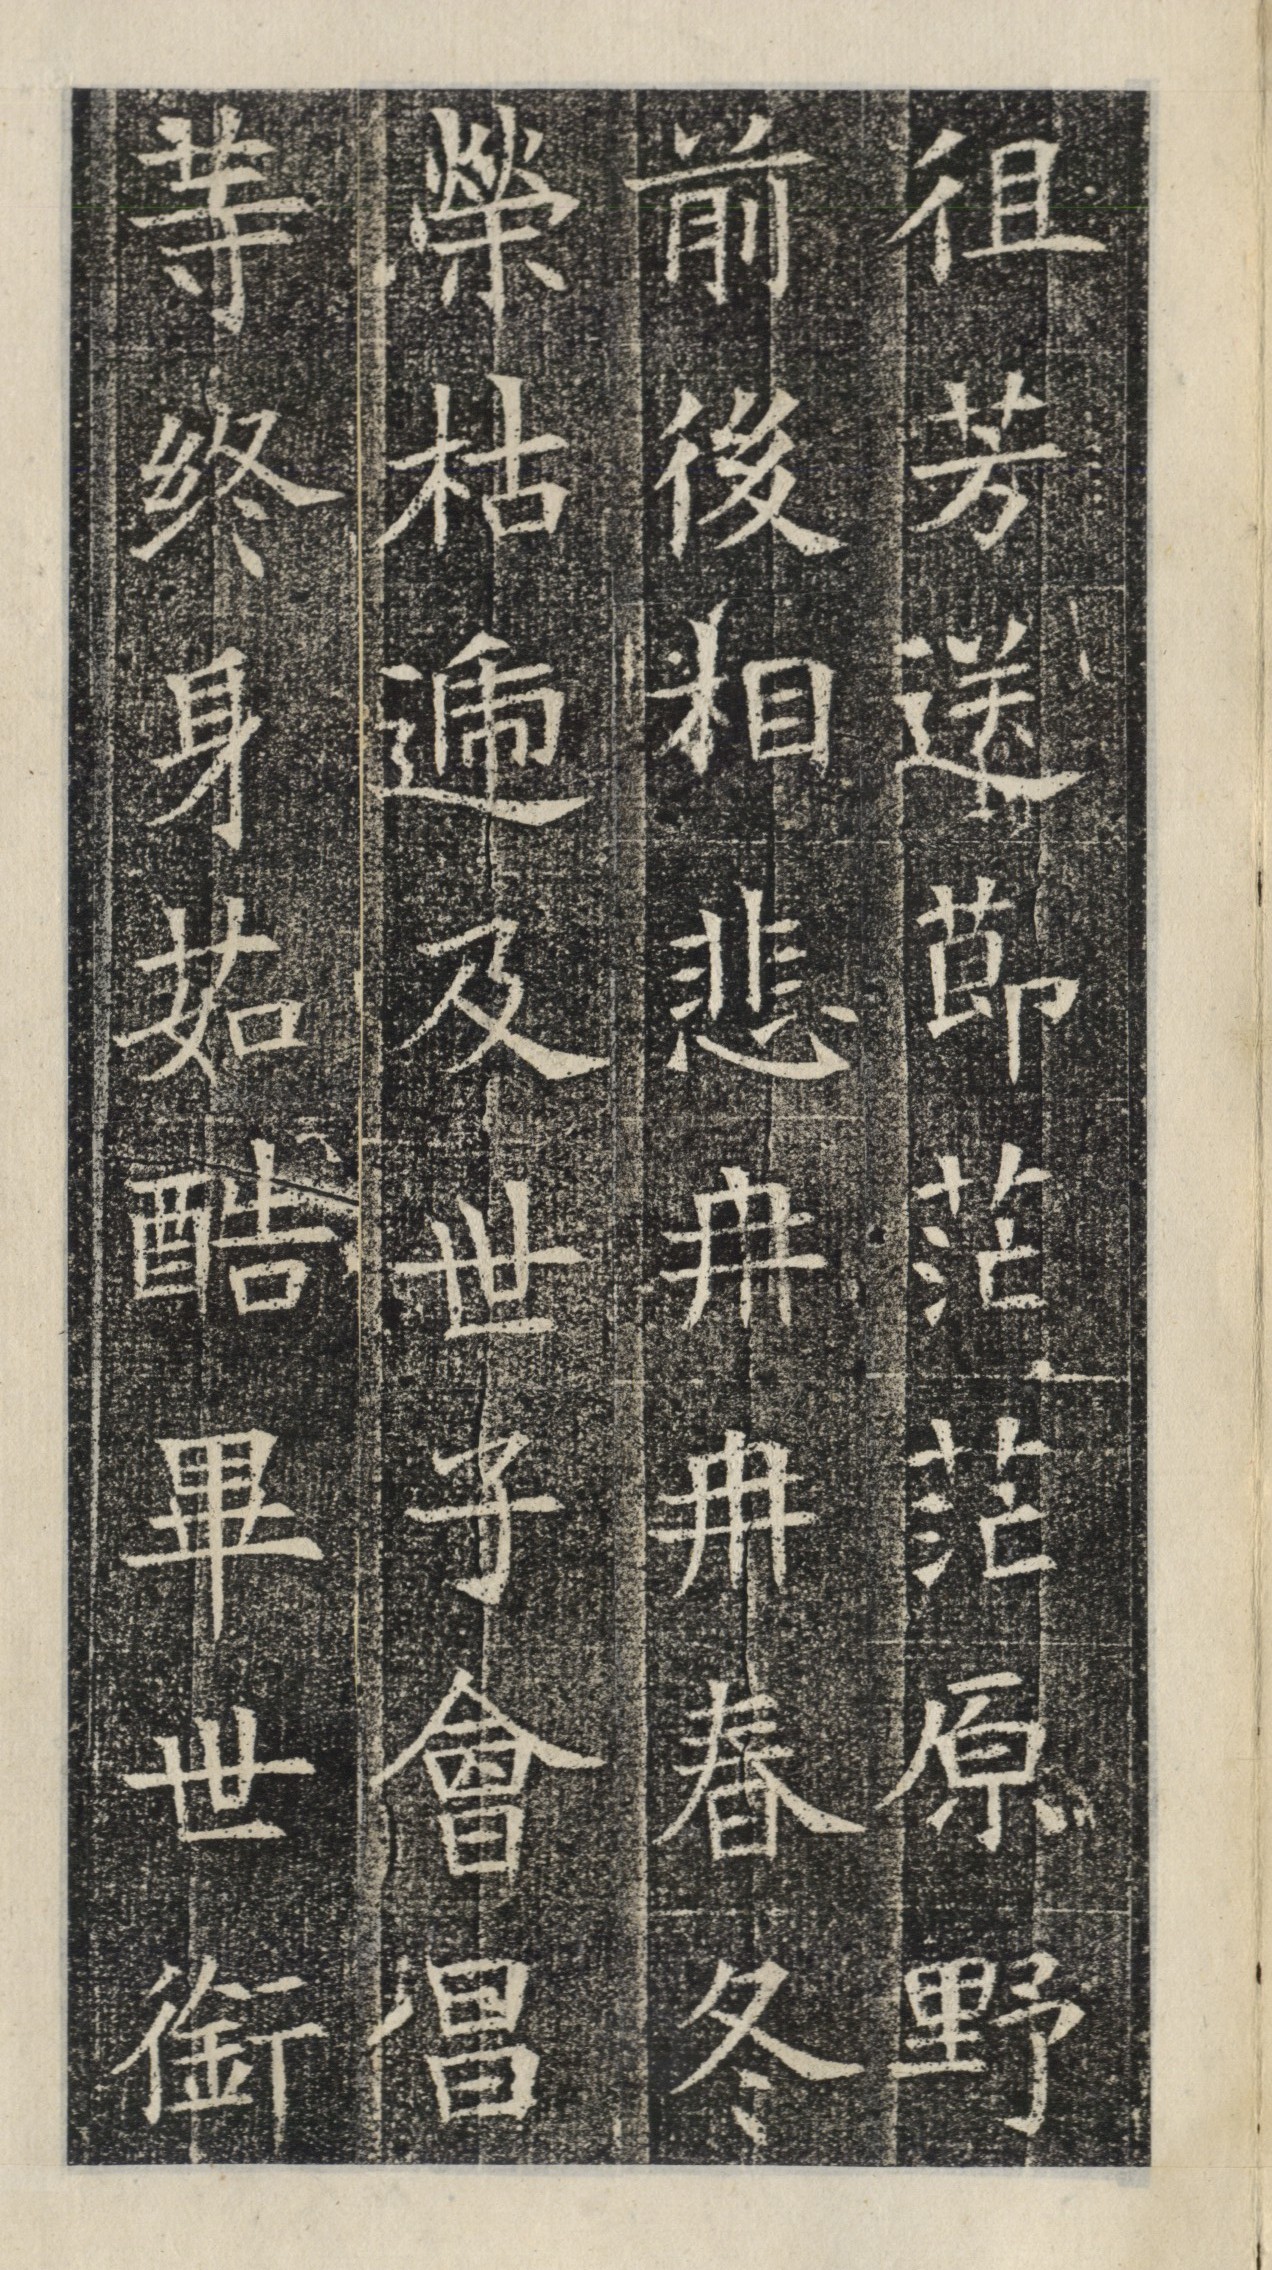 徂芳送節茫茫原野
前後相悲冉冉春冬
榮枯遞及世子會倡
等終身茹酷畢世銜